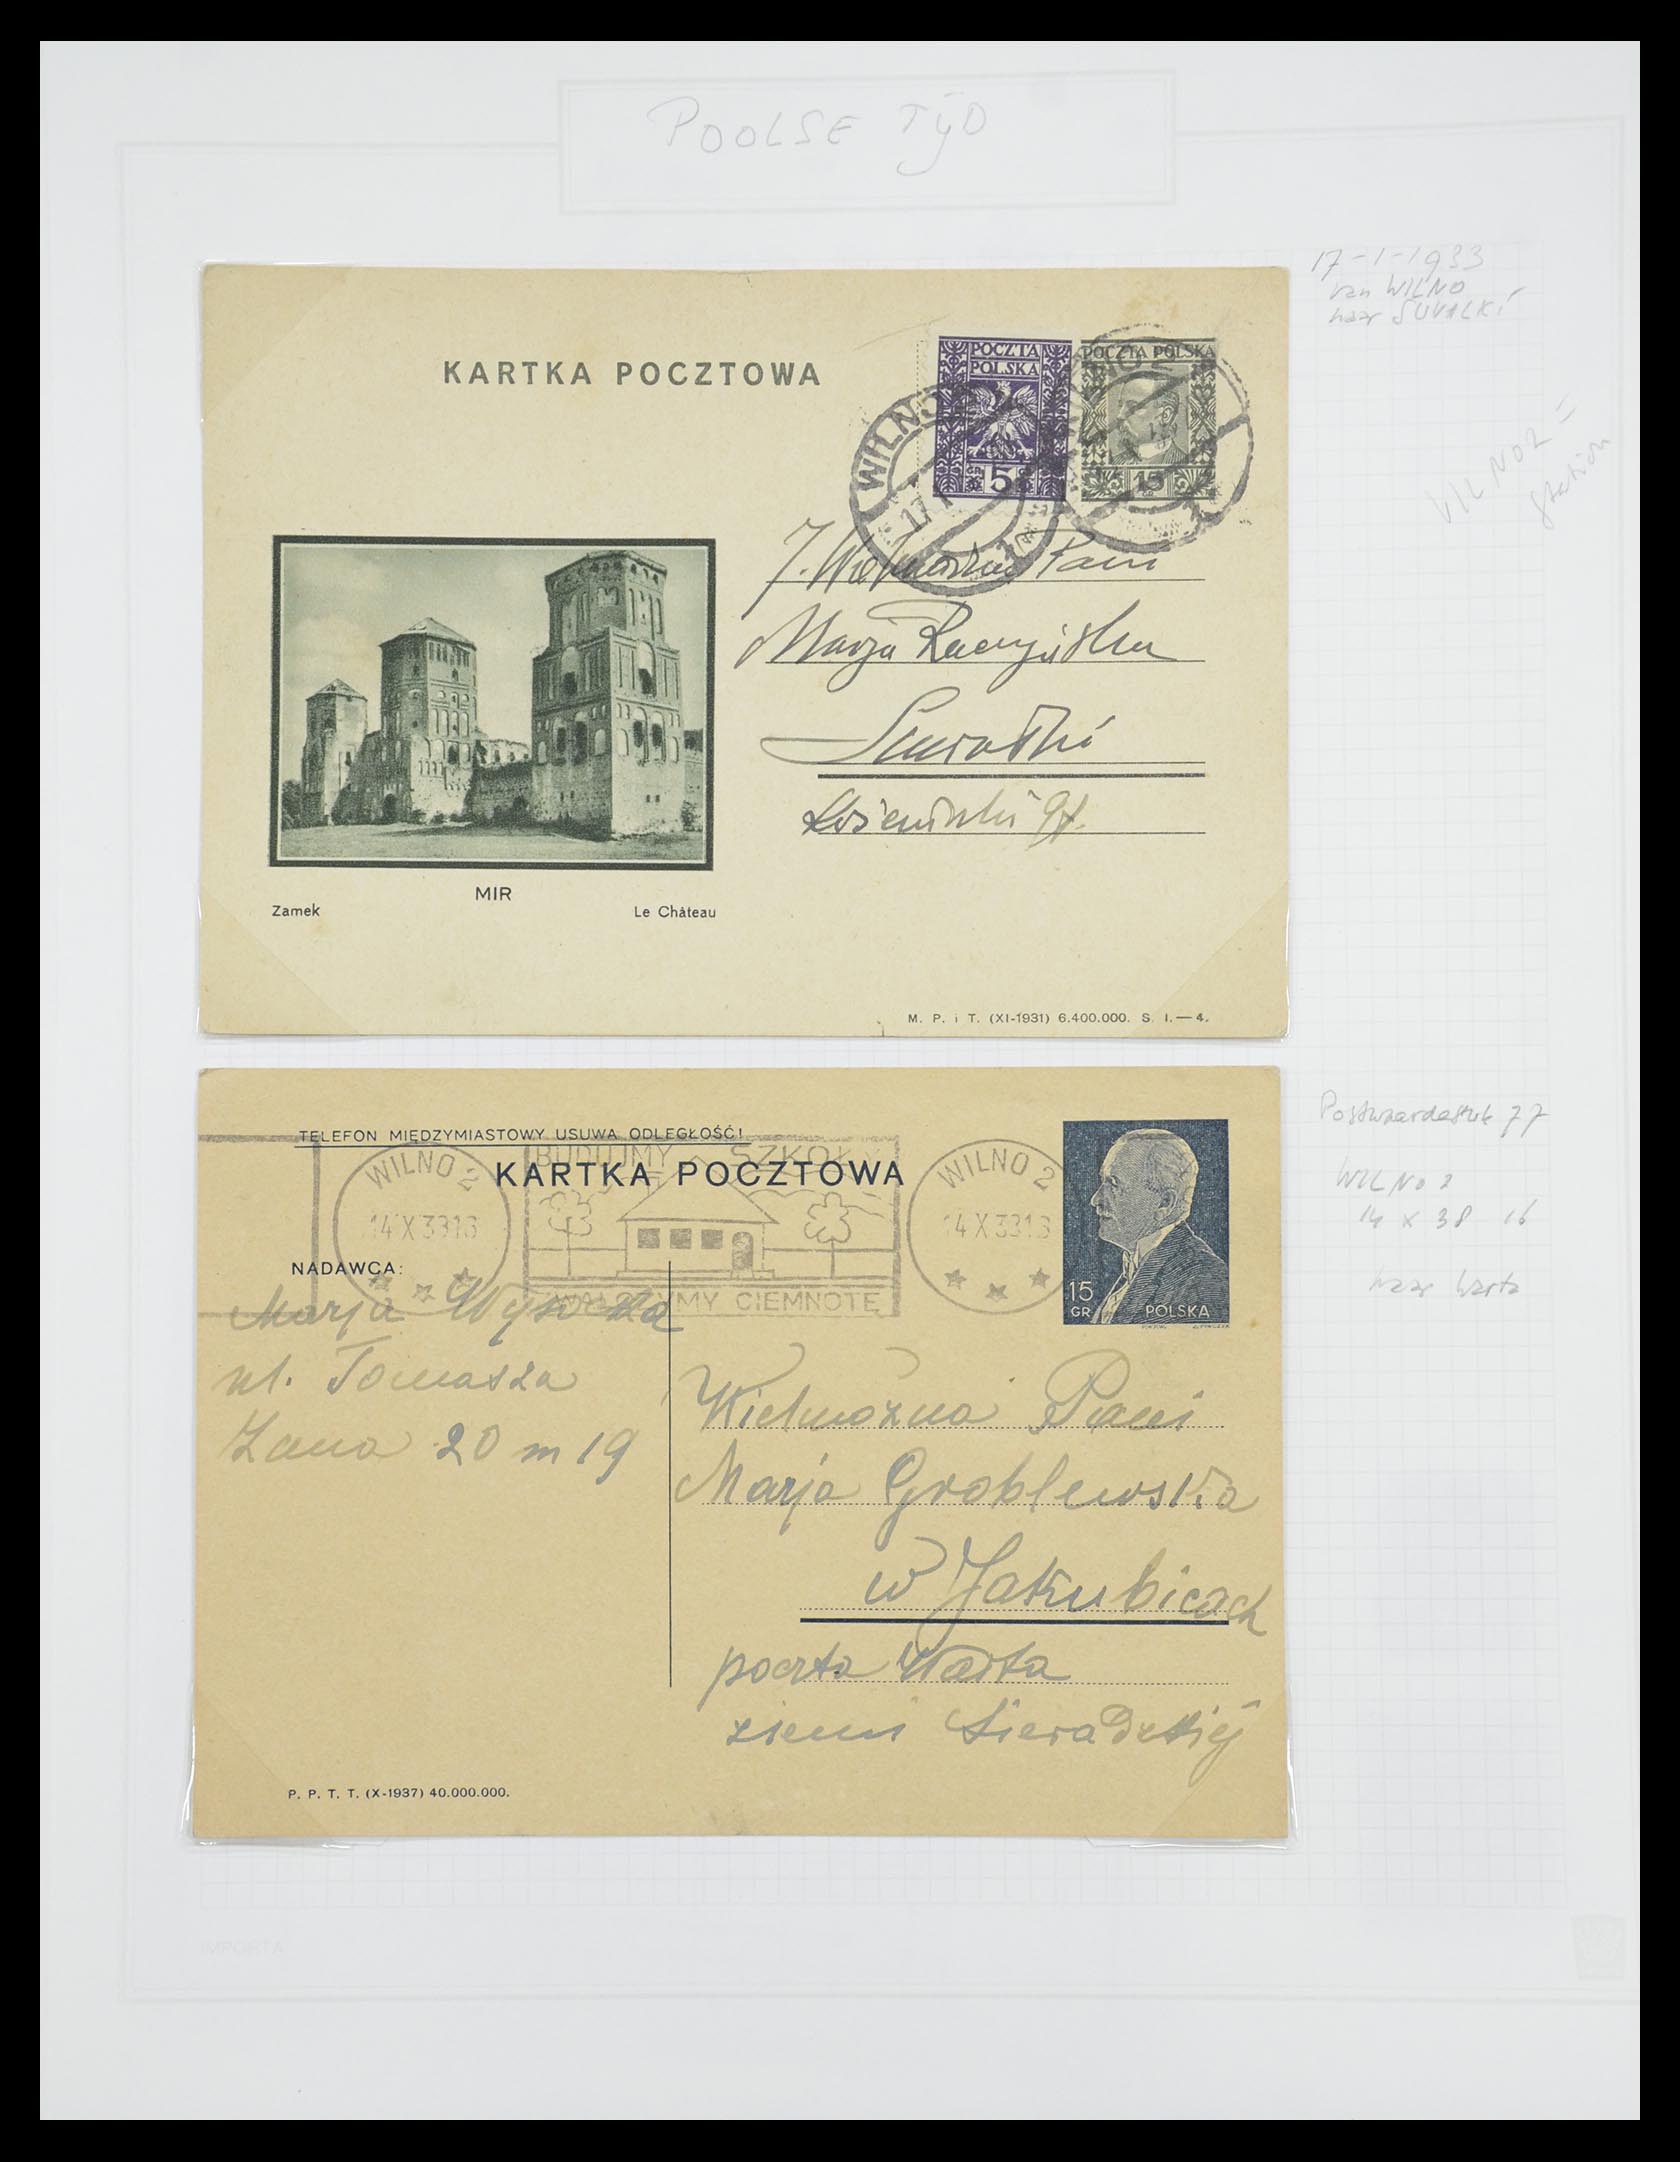 POOLSE TYD
17-1-1933
van WILNO
naar SUVALKI
VILNO 2 =
station
KARTKA POCZTOWA
POCZTA
POLSKA
GR 5
POCZTA POLSKA
15
WILNO
17 I
J. Wielmożna Pani
Marja
Suwałki
MIR
Zamek
Le Château
M. P. i T. (XI-1931) 6.400.000. S. I.— 4.
Postwaardestuk 77
WILNO 2
14 X 38 16
naar Warta
TELEFON MIĘDZYMIASTOWY USUWA ODLEGŁOŚĆ!
KARTKA POCZTOWA
WILNO 2
14 X 38 16
BUDUJMY SZKOŁY
WALCZYMY CIEMNOTĘ
WILNO 2
14 X 38 16
15
GR
POLSKA
NADAWCA:
Marja Wysocka
ul. Tomasza
Zana 20 m 19
Wielmożna Pani
Marja Groblewska
w Jakubicach
poczta Warta
ziemi Sieradzkiej
P. P. T. T. (X-1937) 40.000.000.
IMPORTA